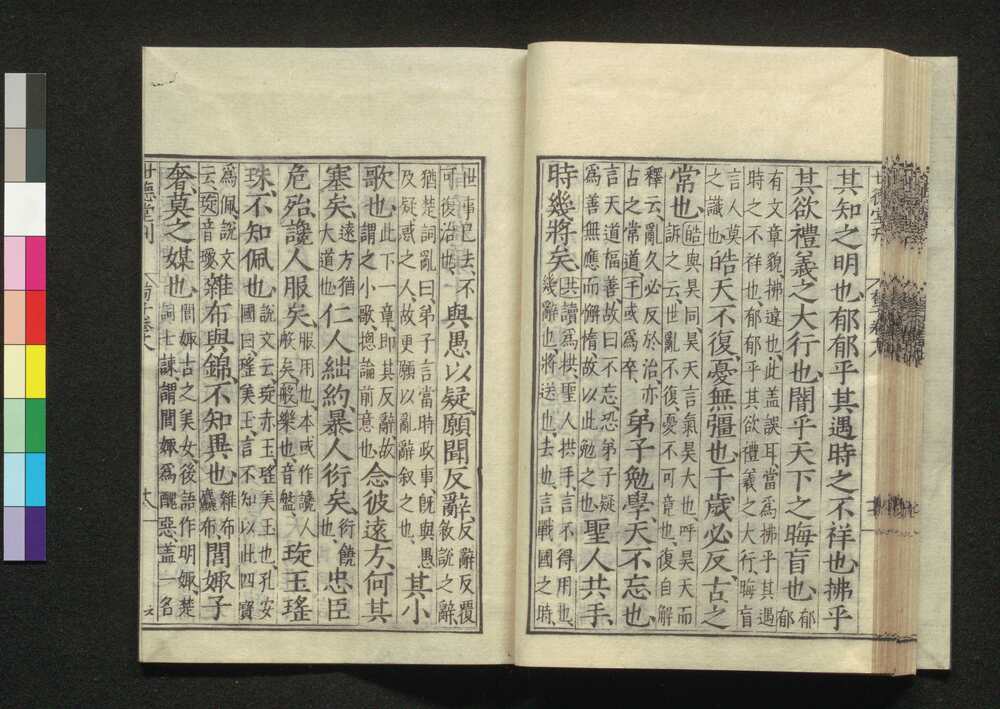 其知之明也、郁郁乎其遇時之不祥也、拂乎
其欲禮義之大行也、闇乎天下之晦盲也、郁郁
有文章貌、拂違也、此蓋誤耳、當爲拂乎其遇
時之不祥也、郁郁乎其欲禮義之大行、晦盲
言人莫
之識也皓天不復、憂無彊也、千歲必反、古之
常也、皓與昊同、昊天言氣昊大也、呼昊天而
訴之云、世亂不復、憂不可竟也、復自解
釋云、亂久必反於治、亦
古之常道、千或爲卒弟子勉學、天不忘也、
言天道福善、故曰不忘、恐弟子疑
爲善無應而懈惰、故以此勉之也聖人共手、
時幾將矣、共讀爲拱、聖人拱手、言不得用也、
幾辭也、將送也、去也、言戰國之時、
世事已去、不
可復治也、與愚以疑、願聞反辭、反辭反覆
敘說之辭、
猶楚詞亂曰、弟子言當時政事旣與愚
及疑惑之人、故更願以亂辭叙之也、其小
歌也、此下一章、即其反辭、故
謂之小歌、摠論前意也、念彼遠方、何其
塞矣、遠方猶
大道也仁人絀約、暴人衍矣、衍饒
也、忠臣
危殆、讒人服矣、服用也、本或作讒人
般矣、般樂也、音盤、琁玉瑤
珠、不知佩也、說文云、琁赤玉、瑤美玉也、孔安
國曰、瑤美玉、言不知以此四寶
爲佩、說文
云、琁音瓊、雜布與錦、不知異也、雜布
麤布、閭娵子
奢、莫之媒也、閭娵古之美女、後語作明娵、楚
詞士諫謂閭娵爲醜惡、蓋一名
世德堂刊